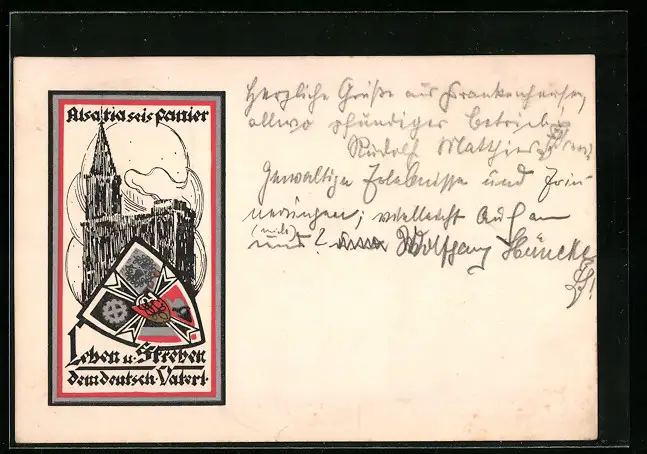 Alsatia seis Panier
Leben u. Streben
dem deutsch. Vaterl.
Herzliche Grüße aus Frankenhausen,
allwo pfundiger Betrieb
Rudolf Matthies
Gewaltige Erlebnisse und Erin-
nerungen; vielleicht auch an
(mich)
uns? Wolfgang Häncke